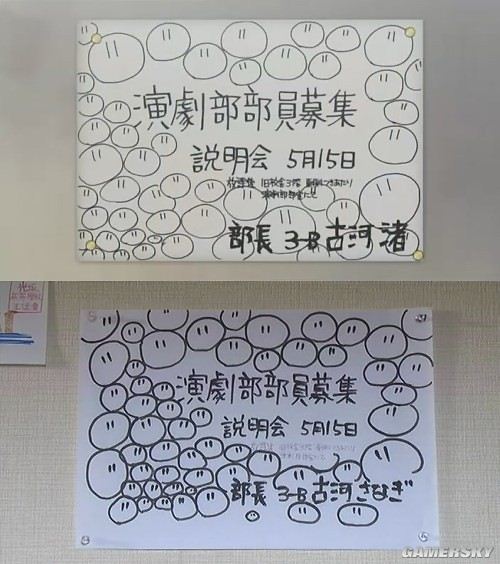 演劇部部員募集
説明会 5月15日
放課後 旧校舎3階
部長 3-B 古河 渚
演劇部部員募集
説明会 5月15日
部長 3-B 古河さなぎ
GAMERSKY